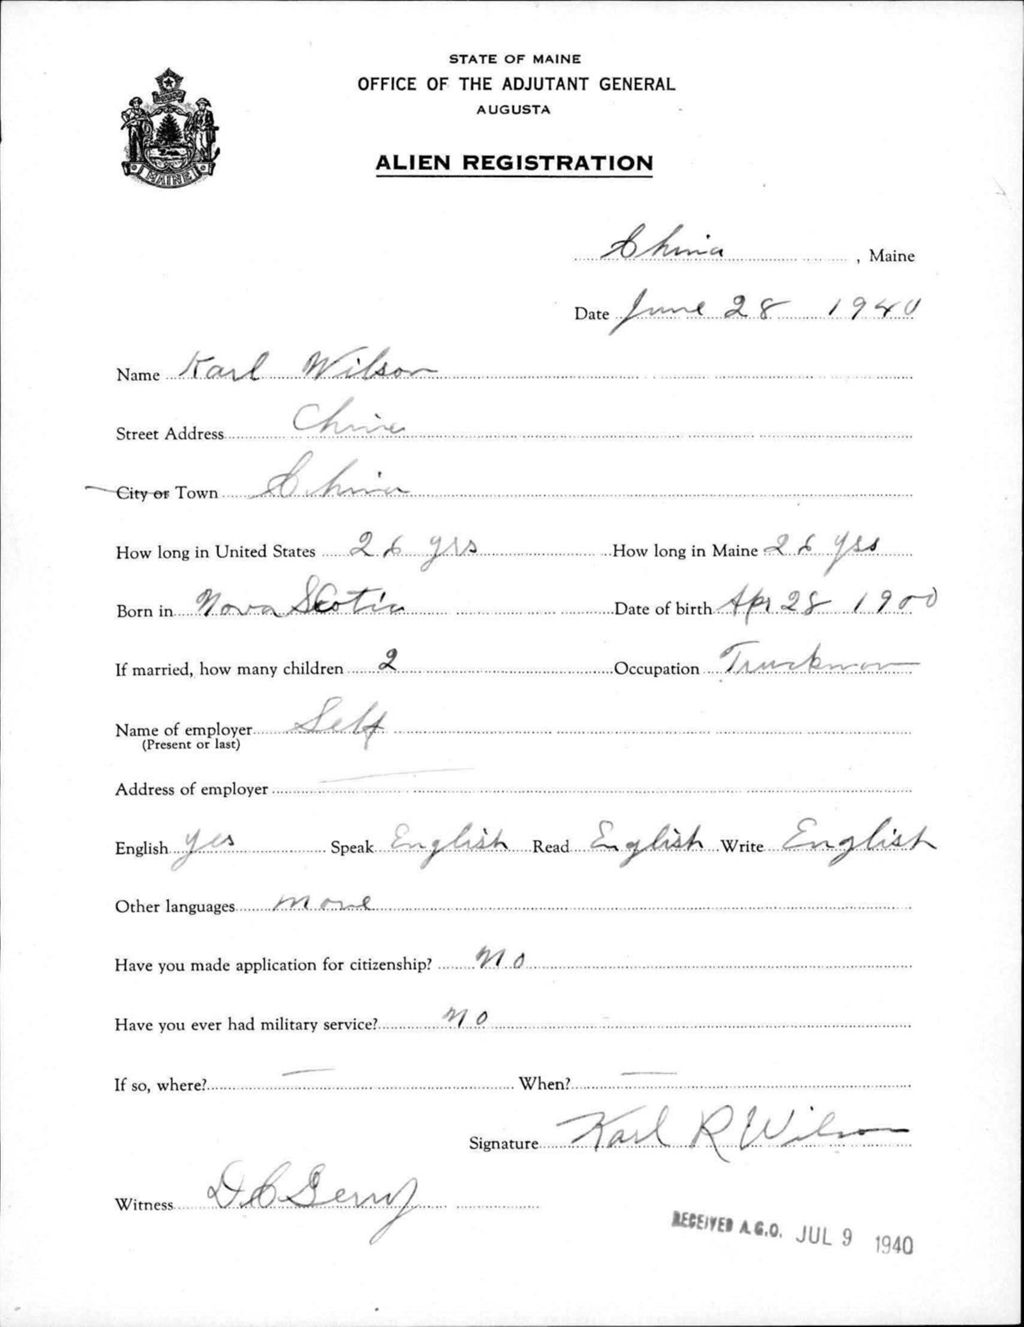 STATE OF MAINE
OFFICE OF THE ADJUTANT GENERAL
AUGUSTA
MAINE
ALIEN REGISTRATION
China, Maine
Date June 28 1940
Name Karl Wilson
Street Address China
City or Town China
How long in United States 26 yrs How long in Maine 26 yrs
Born in Nova Scotia Date of birth Apr 28 1900
If married, how many children 2 Occupation Truckman
Name of employer Self
(Present or last)
Address of employer
English yes Speak English Read English Write English
Other languages none
Have you made application for citizenship? no
Have you ever had military service? no
If so, where? — When? —
Signature Karl R Wilson
Witness D C Gerry
RECEIVED A.G.O. JUL 9 1940